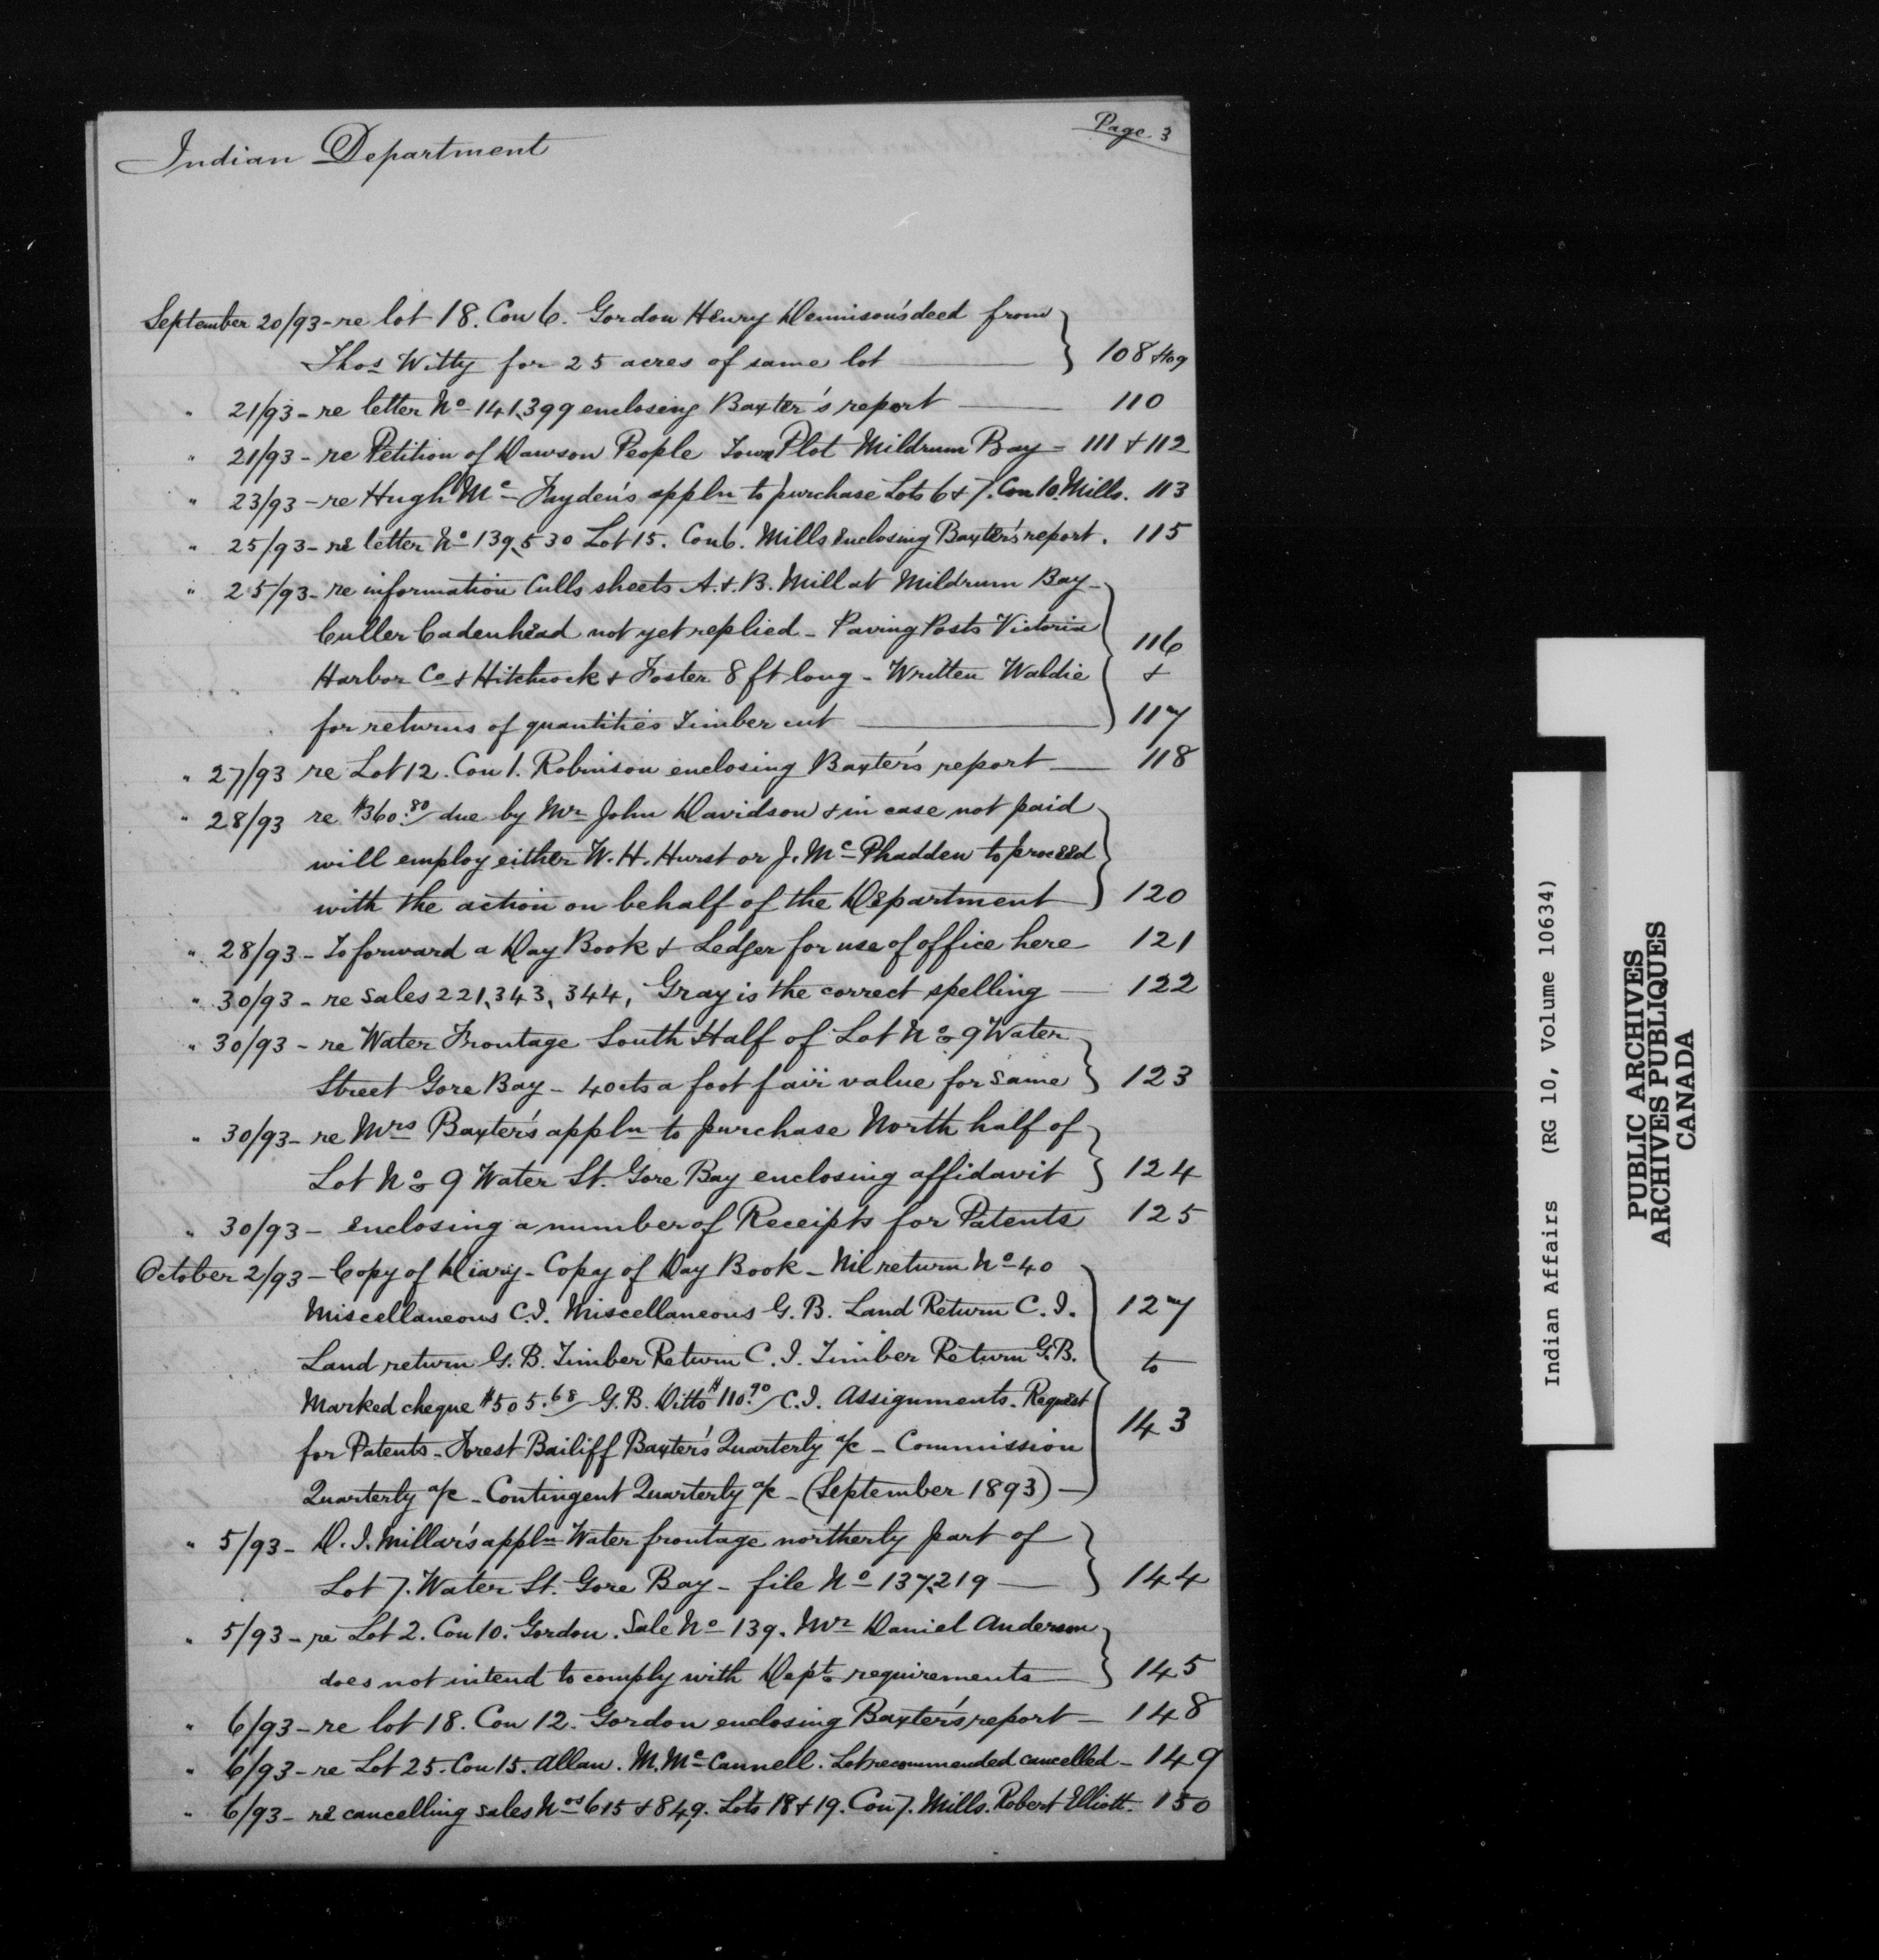 Page 3
Indian Department
September 20/93 - re lot 18. Con 6. Gordon Henry Dennison's deed from
Thos Witty for 25 acres of same lot — 108 & 109
" 21/93 - re letter No 141,399 enclosing Baxter's report — 110
" 21/93 - re Petition of Dawson People Town Plot Mildrum Bay - 111 & 112
" 23/93 - re Hugh Mc Fayden's appln to purchase Lots 6 & 7. Con 10. Mills. 113
" 25/93 - re letter No 139,530 Lot 15. Con 6. Mills enclosing Baxter's report. 115
" 25/93 - re information Culls sheets A. & B. Mill at Mildrum Bay -
Culler Cadenhead not yet replied - Paving Posts Victoria 116
Harbor Co & Hitchcock & Foster 8 ft long - Written Waldie &
for returns of quantities Timber cut — 117
" 27/93 re Lot 12. Con 1. Robinson enclosing Baxter's report — 118
" 28/93 re $360.80 due by Mr John Davidson & in case not paid
will employ either W. H. Hurst or J. Mc Phadden to proceed
with the action on behalf of the Department — 120
" 28/93 - To forward a Day Book & Ledger for use of office here 121
" 30/93 - re sales 221, 343, 344, Gray is the correct spelling — 122
" 30/93 - re Water Frontage South Half of Lot No 9 Water
Street Gore Bay - 40cts a foot fair value for same 123
" 30/93 - re Mrs Baxter's appln to purchase North half of
Lot No 9 Water St. Gore Bay enclosing affidavit 124
" 30/93 - enclosing a number of Receipts for Patents 125
October 2/93 - Copy of Diary - Copy of Day Book - Nil return No 40
Miscellaneous C.I. Miscellaneous G.B. Land Return C.I. 127
Land return G.B. Timber Return C.I. Timber Return G.B. to
Marked cheque $505.68 G.B. Ditto $110.90 C.I. Assignments. Request
for Patents - Forest Bailiff Baxter's Quarterly a/c - Commission 143
Quarterly a/c - Contingent Quarterly a/c - (September 1893) —
" 5/93 - D. I. Millar's appln Water frontage northerly part of
Lot 7. Water St. Gore Bay - file No 137,219 — 144
" 5/93 - re Lot 2. Con 10. Gordon. Sale No 139. Mr Daniel Anderson
does not intend to comply with Dept. requirements — 145
" 6/93 - re lot 18. Con 12. Gordon enclosing Baxter's report — 148
" 6/93 - re Lot 25. Con 15. Allan. M. Mc Cannell. Lot recommended cancelled - 149
" 6/93 - re cancelling sales Nos 615 & 849. Lots 18 & 19. Con 7. Mills. Robert Elliott. 150
Indian Affairs (RG 10, Volume 10634)
PUBLIC ARCHIVES
ARCHIVES PUBLIQUES
CANADA